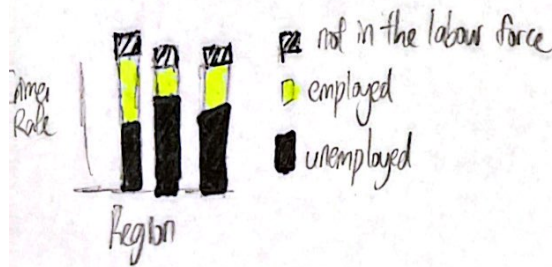 Rate
Region
not in the labour force
employed
unemployed